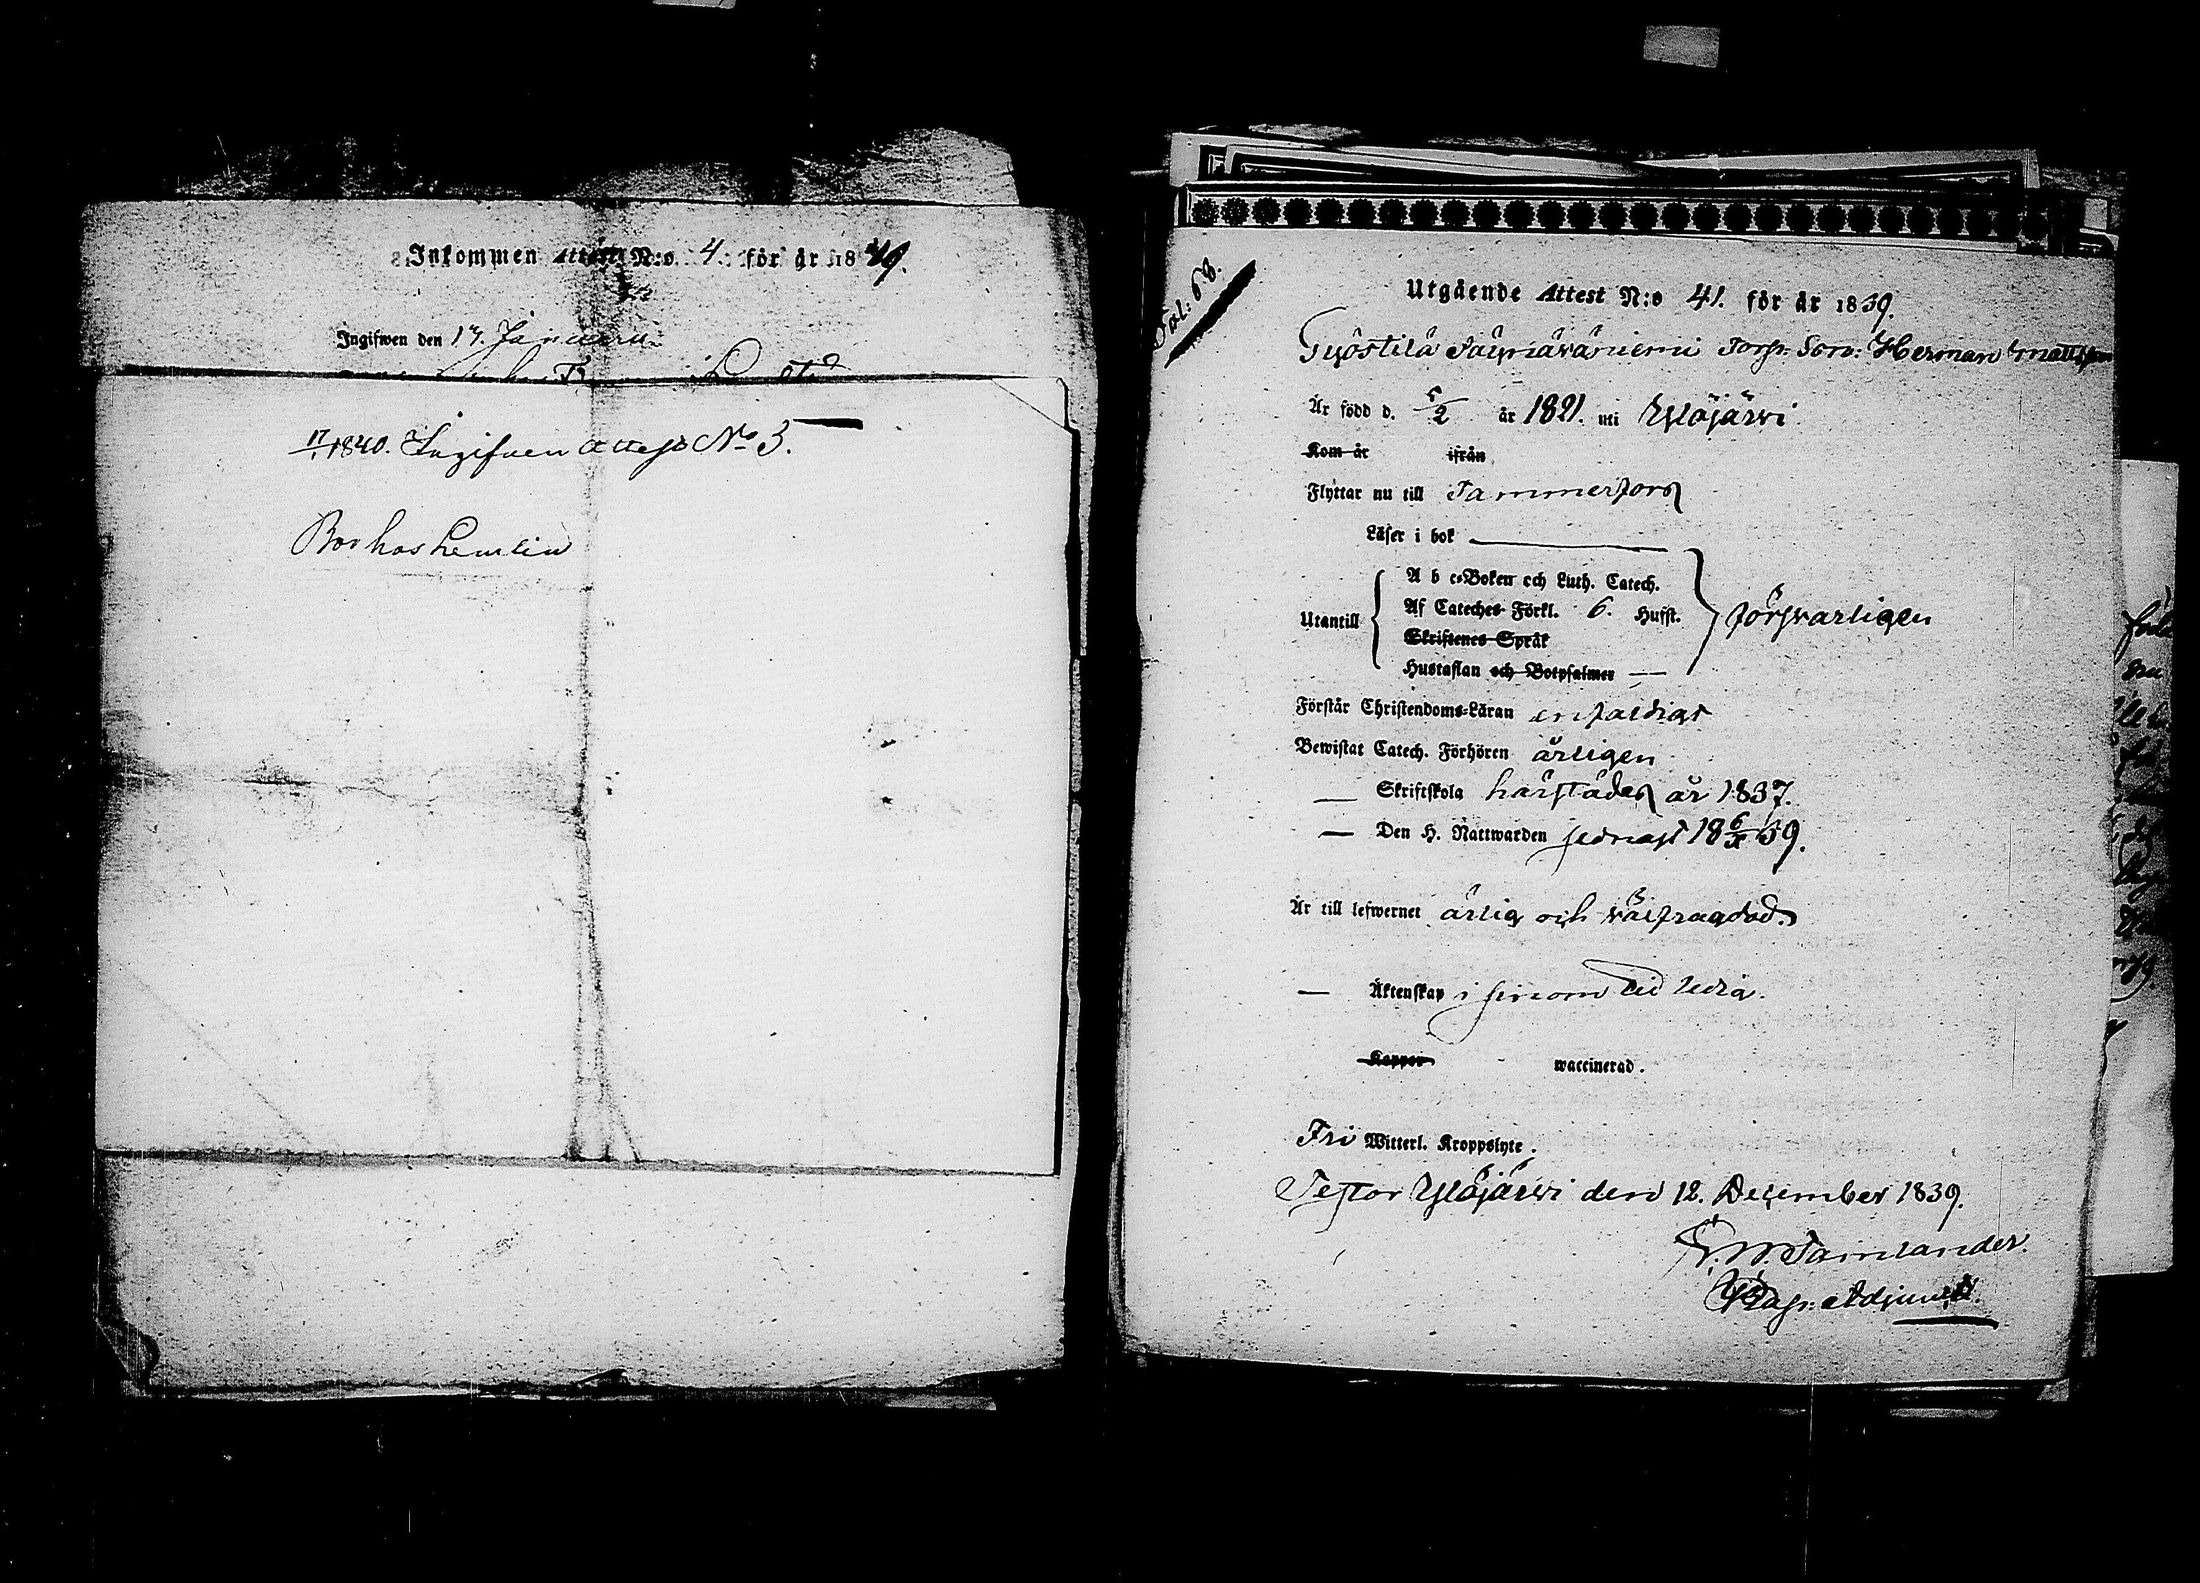 Inkommen Attest N:o 4. för år 1849.
Ingifwen den 17. Januari
17/1 1840. Ingifven Attest No 3.
Bor hos Lemlin
Fol: 68.
Utgående Attest N:o 41. för år 1839.
Gyöstilä Torp. Son: Herman Mattsson
Är född d. 5/2 år 1821. uti Ylöjärvi
Kom år ifrån
Flyttar nu till Tammerfors
Läser i bok
A b c-Boken och Luth. Catech.
Utantill Af Cateches Förkl. 6. Hufst. försvarligen
Skriftenes Språk
Hustaflan och Botpsalmer
Förstår Christendoms-Läran enfaldigt
Bewistat Catech. Förhören årligen
— Skriftskola härstädes år 1837.
— Den H. Nattwarden sednast 18 6/X 39.
Är till lefwernet ärlig och välfrägdad.
— Äktenskap i sinom tid ledig.
Koppor waccinerad.
Fri Witterl. Kroppslyte.
Testor Ylöjärvi den 12. December 1839.
Tamlander.
Adjunkt.